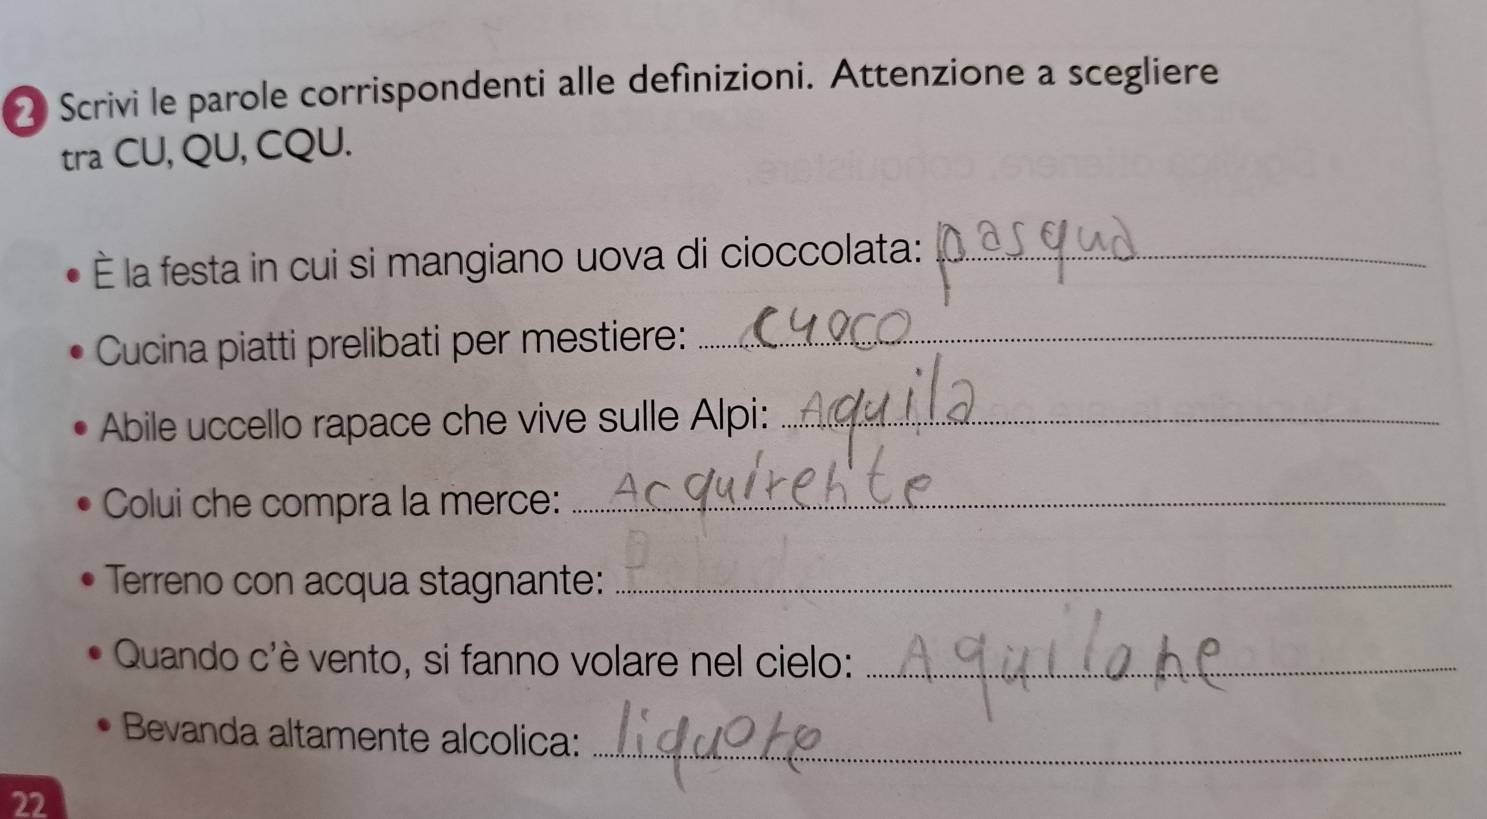 2 Scrivi le parole corrispondenti alle definizioni. Attenzione a scegliere
tra CU, QU, CQU.
• È la festa in cui si mangiano uova di cioccolata: pasqua
• Cucina piatti prelibati per mestiere: cuoco
• Abile uccello rapace che vive sulle Alpi: Aquila
• Colui che compra la merce: Acquirente
• Terreno con acqua stagnante:
• Quando c'è vento, si fanno volare nel cielo: Aquilone
• Bevanda altamente alcolica: liquore
22